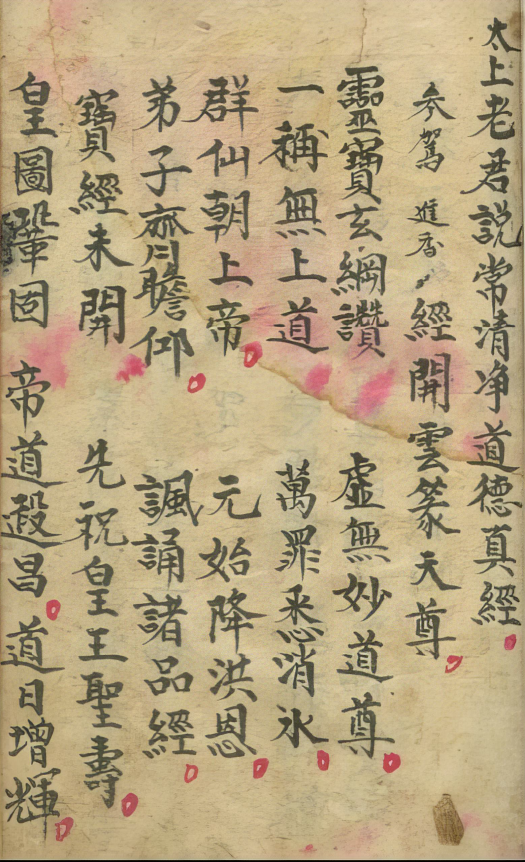 太上老君説常清净道德真經
参駕 進香 經開雲篆天尊
靈寶玄綱讚 虚無妙道尊
一稱無上道 萬罪悉消氷
群仙朝上帝 元始降洪恩
弟子齊瞻仰 諷誦諸品經
寶經未開 先祝皇王聖壽
皇圖鞏固 帝道遐昌 道日增輝